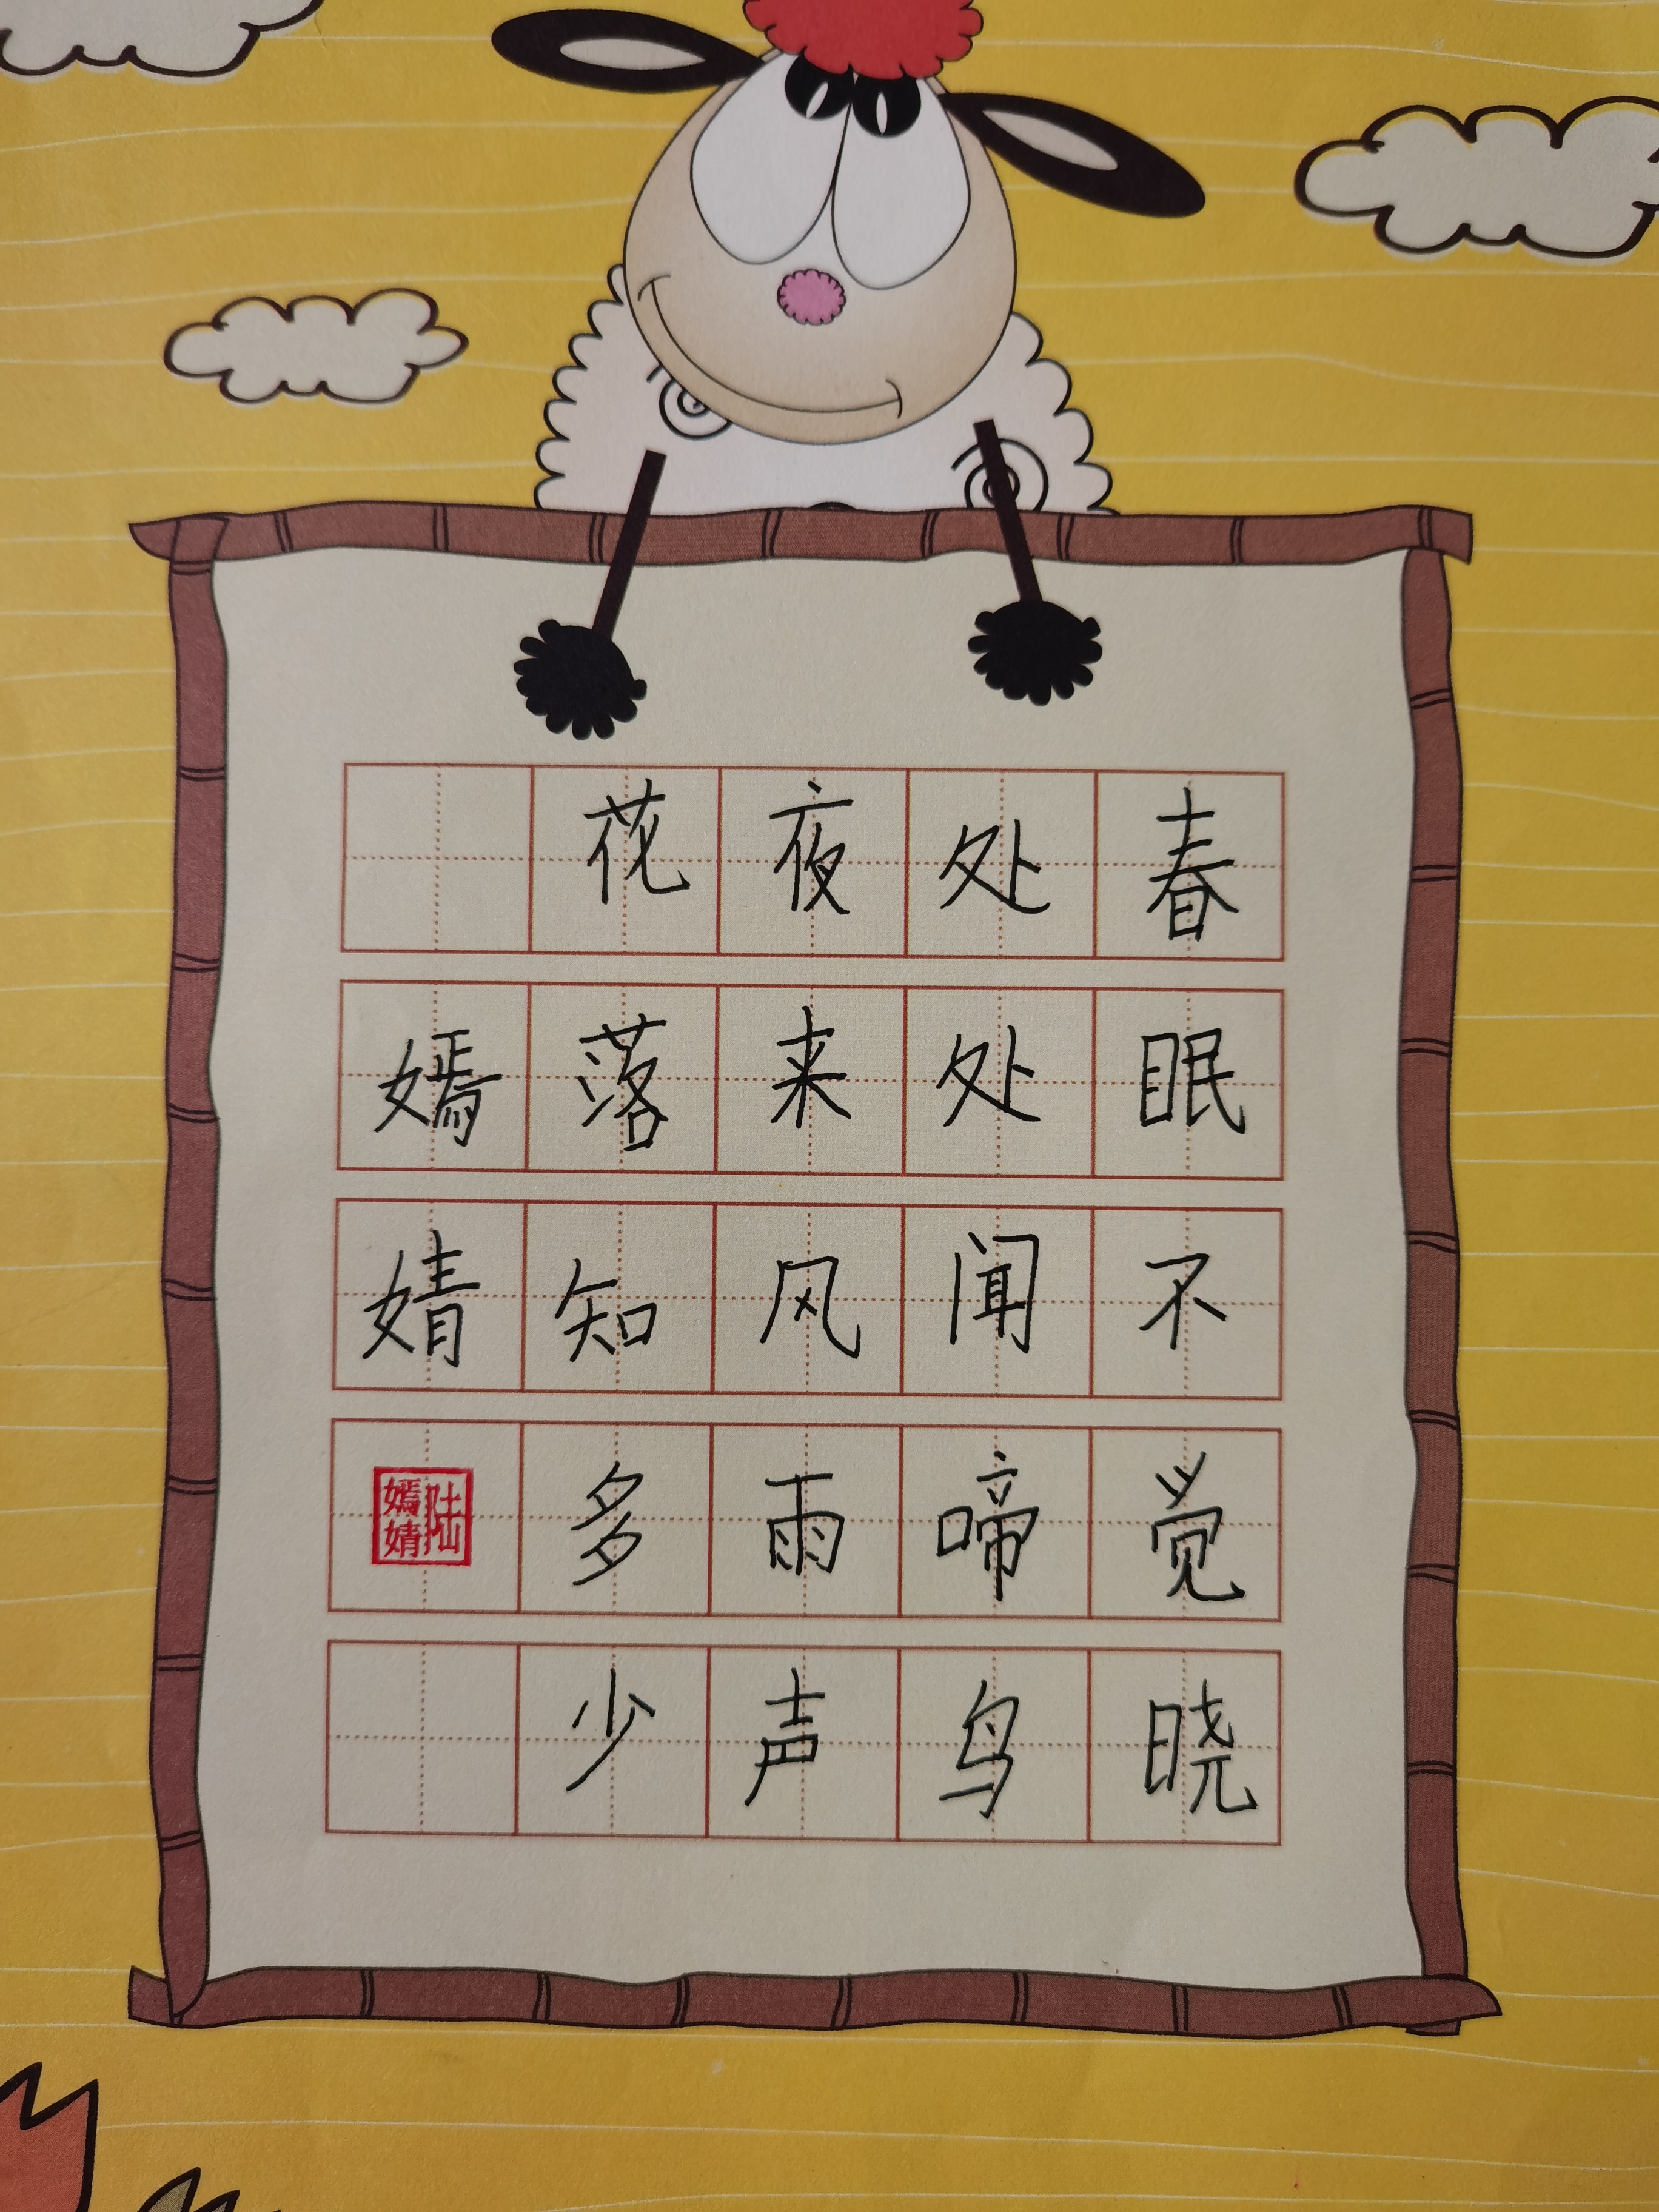 春眠不觉晓
处处闻啼鸟
夜来风雨声
花落知多少
嫣婧
陆嫣婧